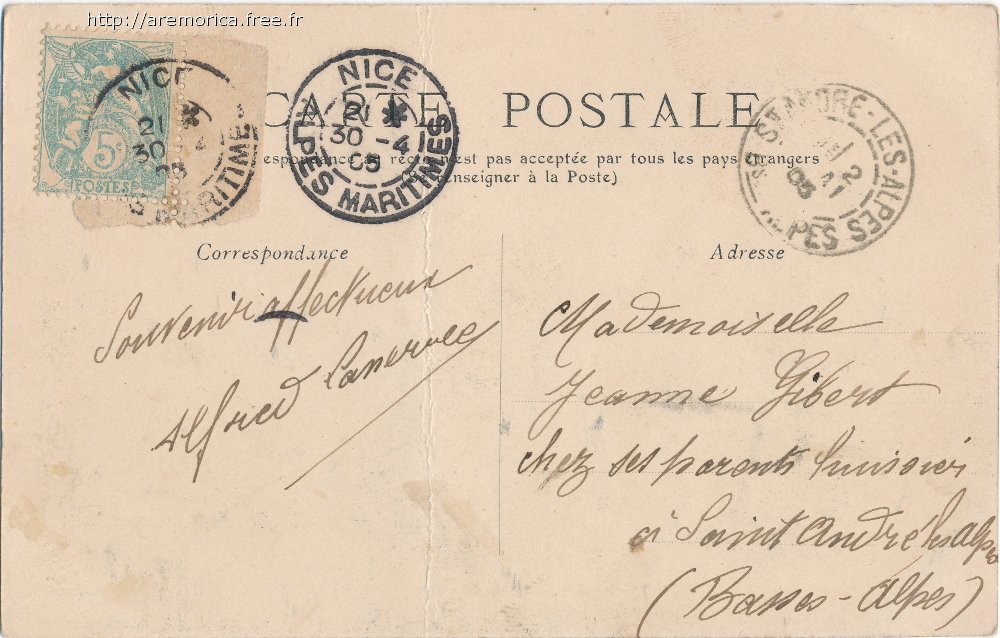 http://aremorica.free.fr
CARTE POSTALE
respondance au recto n'est pas acceptée par tous les pays étrangers
(Se renseigner à la Poste)
5c
POSTES
NICE
21
30
05
MARITIME
NICE
21 *
30 -4
05
ALPES MARITIMES
ST ANDRE-LES-ALPES
2
05
Correspondance
Souvenir affectueux
Alfred
Adresse
Mademoiselle
Jeanne Gibert
chez ses parents huissier
à Saint André les alpes
(Basses-Alpes)